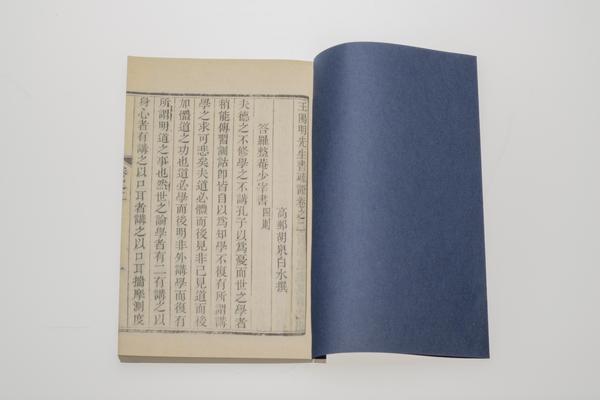 王陽明先生書疏證卷之二
高郵胡泉白水撰
答羅整菴少宰書四則
夫德之不修學之不講孔子以爲憂而世之學者
稍能傳習訓詁卽皆自以爲知學不復有所謂講
學之求可悲矣夫道必體而後見非已見道而後
加體道之功也道必學而後明非外講學而復有
所謂明道之事也然世之論學者有二有講之以
身心者有講之以口耳者講之以口耳揣摩測度
卷之二